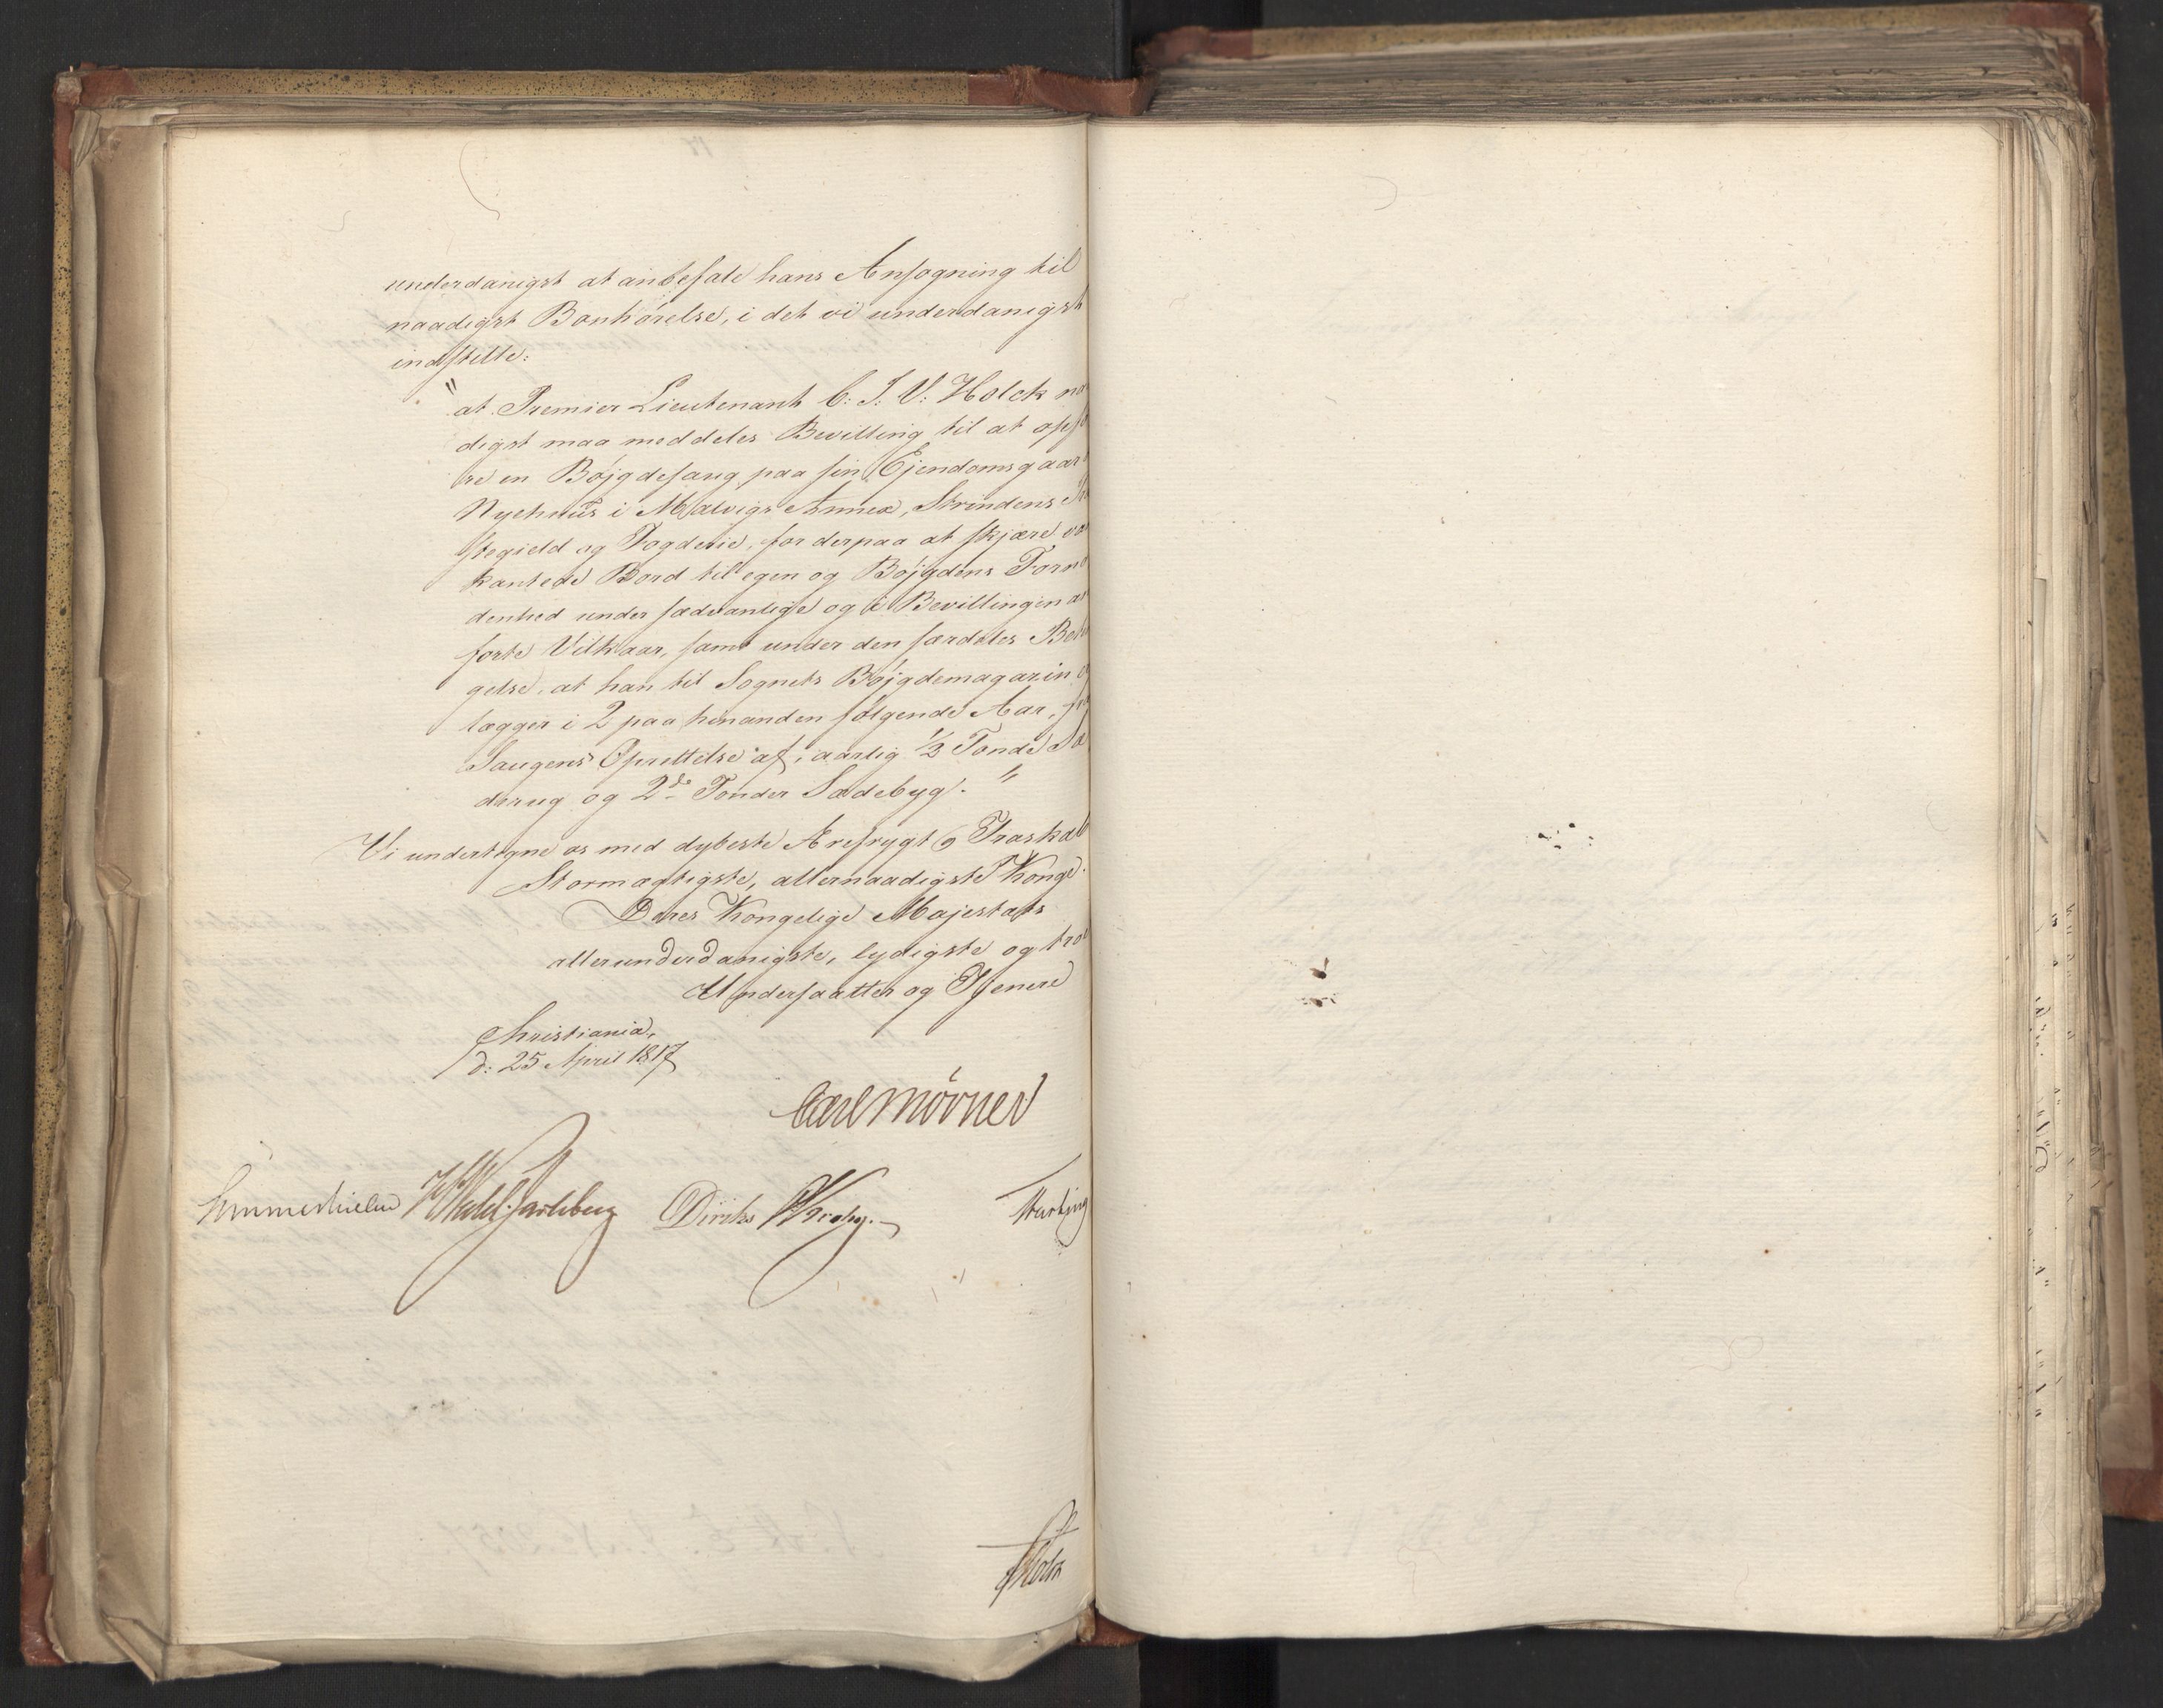 underdanigst at anbefale hans Ansøgning til
naadigst Bønhørelse, i det vi underdanigst
indstille:
"at Premier Lieutenant C: J: V: Holck naa
digst maa meddeles Bevilling til at opfø
re en Bøjgdesaug paa sin Ejendomsgaard
Nyehuus i Malvigs Annex, Strindens
stegield og Fogderie, for derpaa at skjære
kantede Bord til egen og Bøjgdens Fornø
denhed under sædvanlige og i Bevillingen an
førte Vilkaar, samt under den særdeles Betin
gelse, at han til Sognets Bøjgdemagazin
lægger i 2 paa hinanden følgende Aar, fra
Saugens Oprettelse af, aarlig ½ Tønde Sæ
derug og 2de Tønder Sædebyg."
Vi undertegne os med dybeste Ærefrygt og Troskab
Stormægtigste, allernaadigste Konge.
Deres Kongelige Majestæts
allerunderdanigste, lydigste og troe
Undersaatter og Tjenere
Christiania,
d: 25 April 1817
Carl Mörner
Sommerhielm HWedel-Jarlsberg Diriks Krohg.
Holst